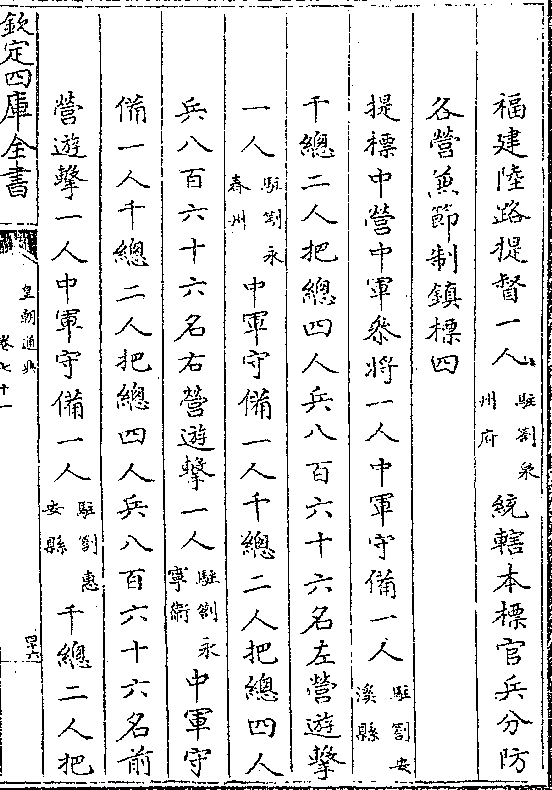 福建陸路提督一人駐劄泉州府統轄本標官兵分防
各營兼節制鎮標四
提標中營中軍叅將一人中軍守備一人駐劄安溪縣
千總二人把總四人兵八百六十六名左營遊擊
一人駐劄永春州中軍守備一人千總二人把總四人
兵八百六十六名右營遊擊一人駐劄永寧衛中軍守
備一人千總二人把總四人兵八百六十六名前
營遊擊一人中軍守備一人駐劄惠安縣千總二人把
欽定四庫全書
皇朝通典
卷七十一